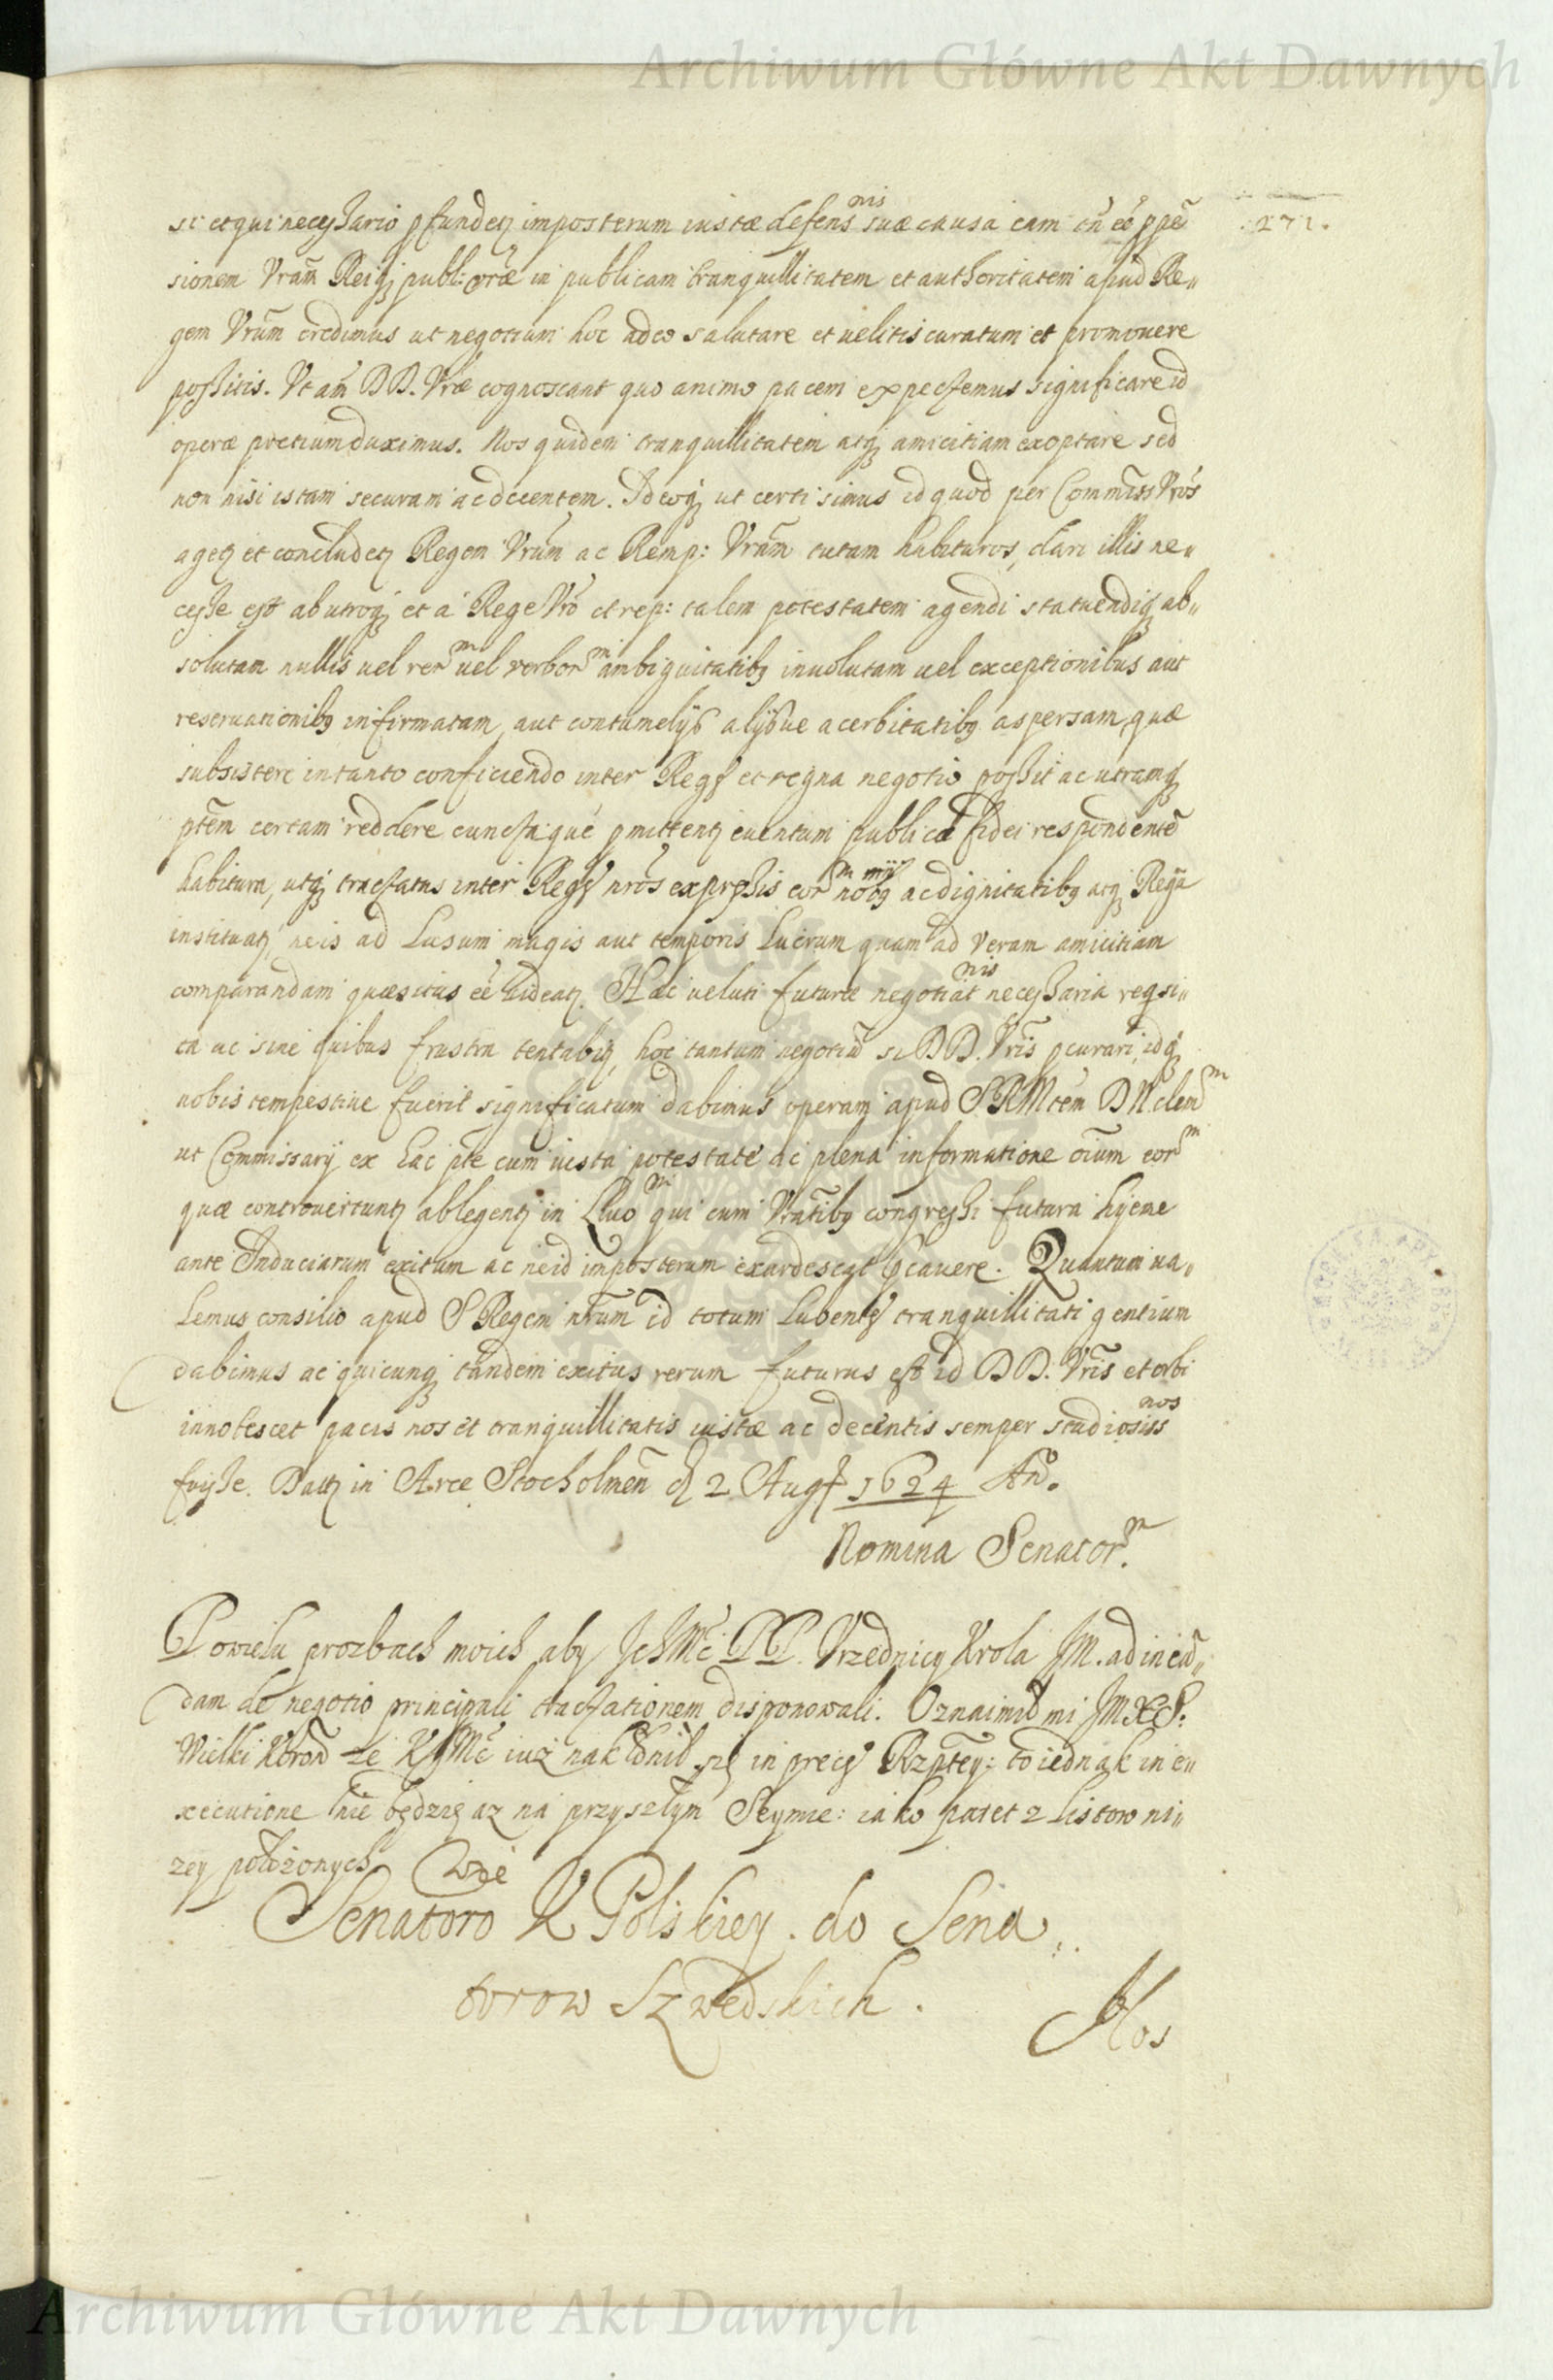 Archiwum Główne Akt Dawnych
271.
si et qui necessario pfundetz imposterum iustæ defens^nis suæ causa eam tñ eẽ ppẽ
sionem Vrãm Reiq publ: vræ in publicam tranquillitatem et authoritatem apud Re„
gem Vrũm credimus ut negotium hoc adeo salutare et uelitis curatum et promouere
possitis. Vt aũ DD. Vræ cognoscant quo animo pacem expectemus significare id
operæ pretium duximus. Nos quidem tranquillitatem atq amicitiam exoptare sed
non nisi istam securam ac decentem. Adeoq ut certi simus id quod per Commiss Vrõs
agetz et concludetz Regem Vrũm ac Remp: Vrãm tutam habituros, dari illis ne„
cesse est ab utroq et á Rege Vrõ et rep: talem potestatem agendi statuendiq ab„
solutam nullis uel rer^m uel verbor^m ambiguitatibq inuolutam uel exceptionibus aut
reseruationibq infirmatam, aut contumelijs alijsue acerbitatibq aspersam, quæ
subsistere in tanto conficiendo inter Reges et regna negotio possit ac utramq
ptẽm certam reddere cunctaque pmittentz euentum publicæ fidei respondentẽ
habitura, utq tractatus inter Reges nrõs expressis eor^m noibq ac dignitatibq atq Regia
instituatz, ne is ad Lusum magis aut temporis Lucrum quam ad veram amicitiam
comparandam quæsitus eẽ uideatz. Hæc ueluti futuræ negotiat^nis necessaria reqsi„
ta ac sine quibus frustra tentabitz, hoc tantum negotiũ si DD. Vris pcurari, idq
nobis tempestiue fuerit significatum dabimus operam apud SRMtem DN clem^m
ut Commissarij ex hac pte cum iusta potestate ac plena informatione oium eor^m
quæ controuertuntz ablegentz in Liuo^m qui cum Vrãtibq congressi futura hyeme
ante Induciarum exitum ac ne id imposterum exardescat pcauere. Quantum ua„
Lemus consilio apud S Regem nrũm id totum Lubentes tranquillitati gentium
dabimus ac quicunq tandem exitus rerum futurus est id DD. Vris et orbi
innotescet pacis nos et tranquillitatis iustæ ac decentis semper studiosiss^nos
fuisse. Datz in Arce Stocholmeñ d 2 Augs 1624 Año.
Nomina Senator^m.
Powielu prozbach moich aby JchMć PP. Vrzednicy Krola JM. ad ineũ„
dam de negotio principali tractationem disponowali. Oznaimił mi JMXP:
Wielki Koroñ że KJMć iuż nakłonił się in preces Rzptey: to iednak in e„
xecutione nie będzie aż na przyszłym Seymie: iako patet z Listow ni„
zey położonych
Senatorow K Polskiey. do Sena„
torow Szwedskich.
Nos
Archiwum Główne Akt Dawnych